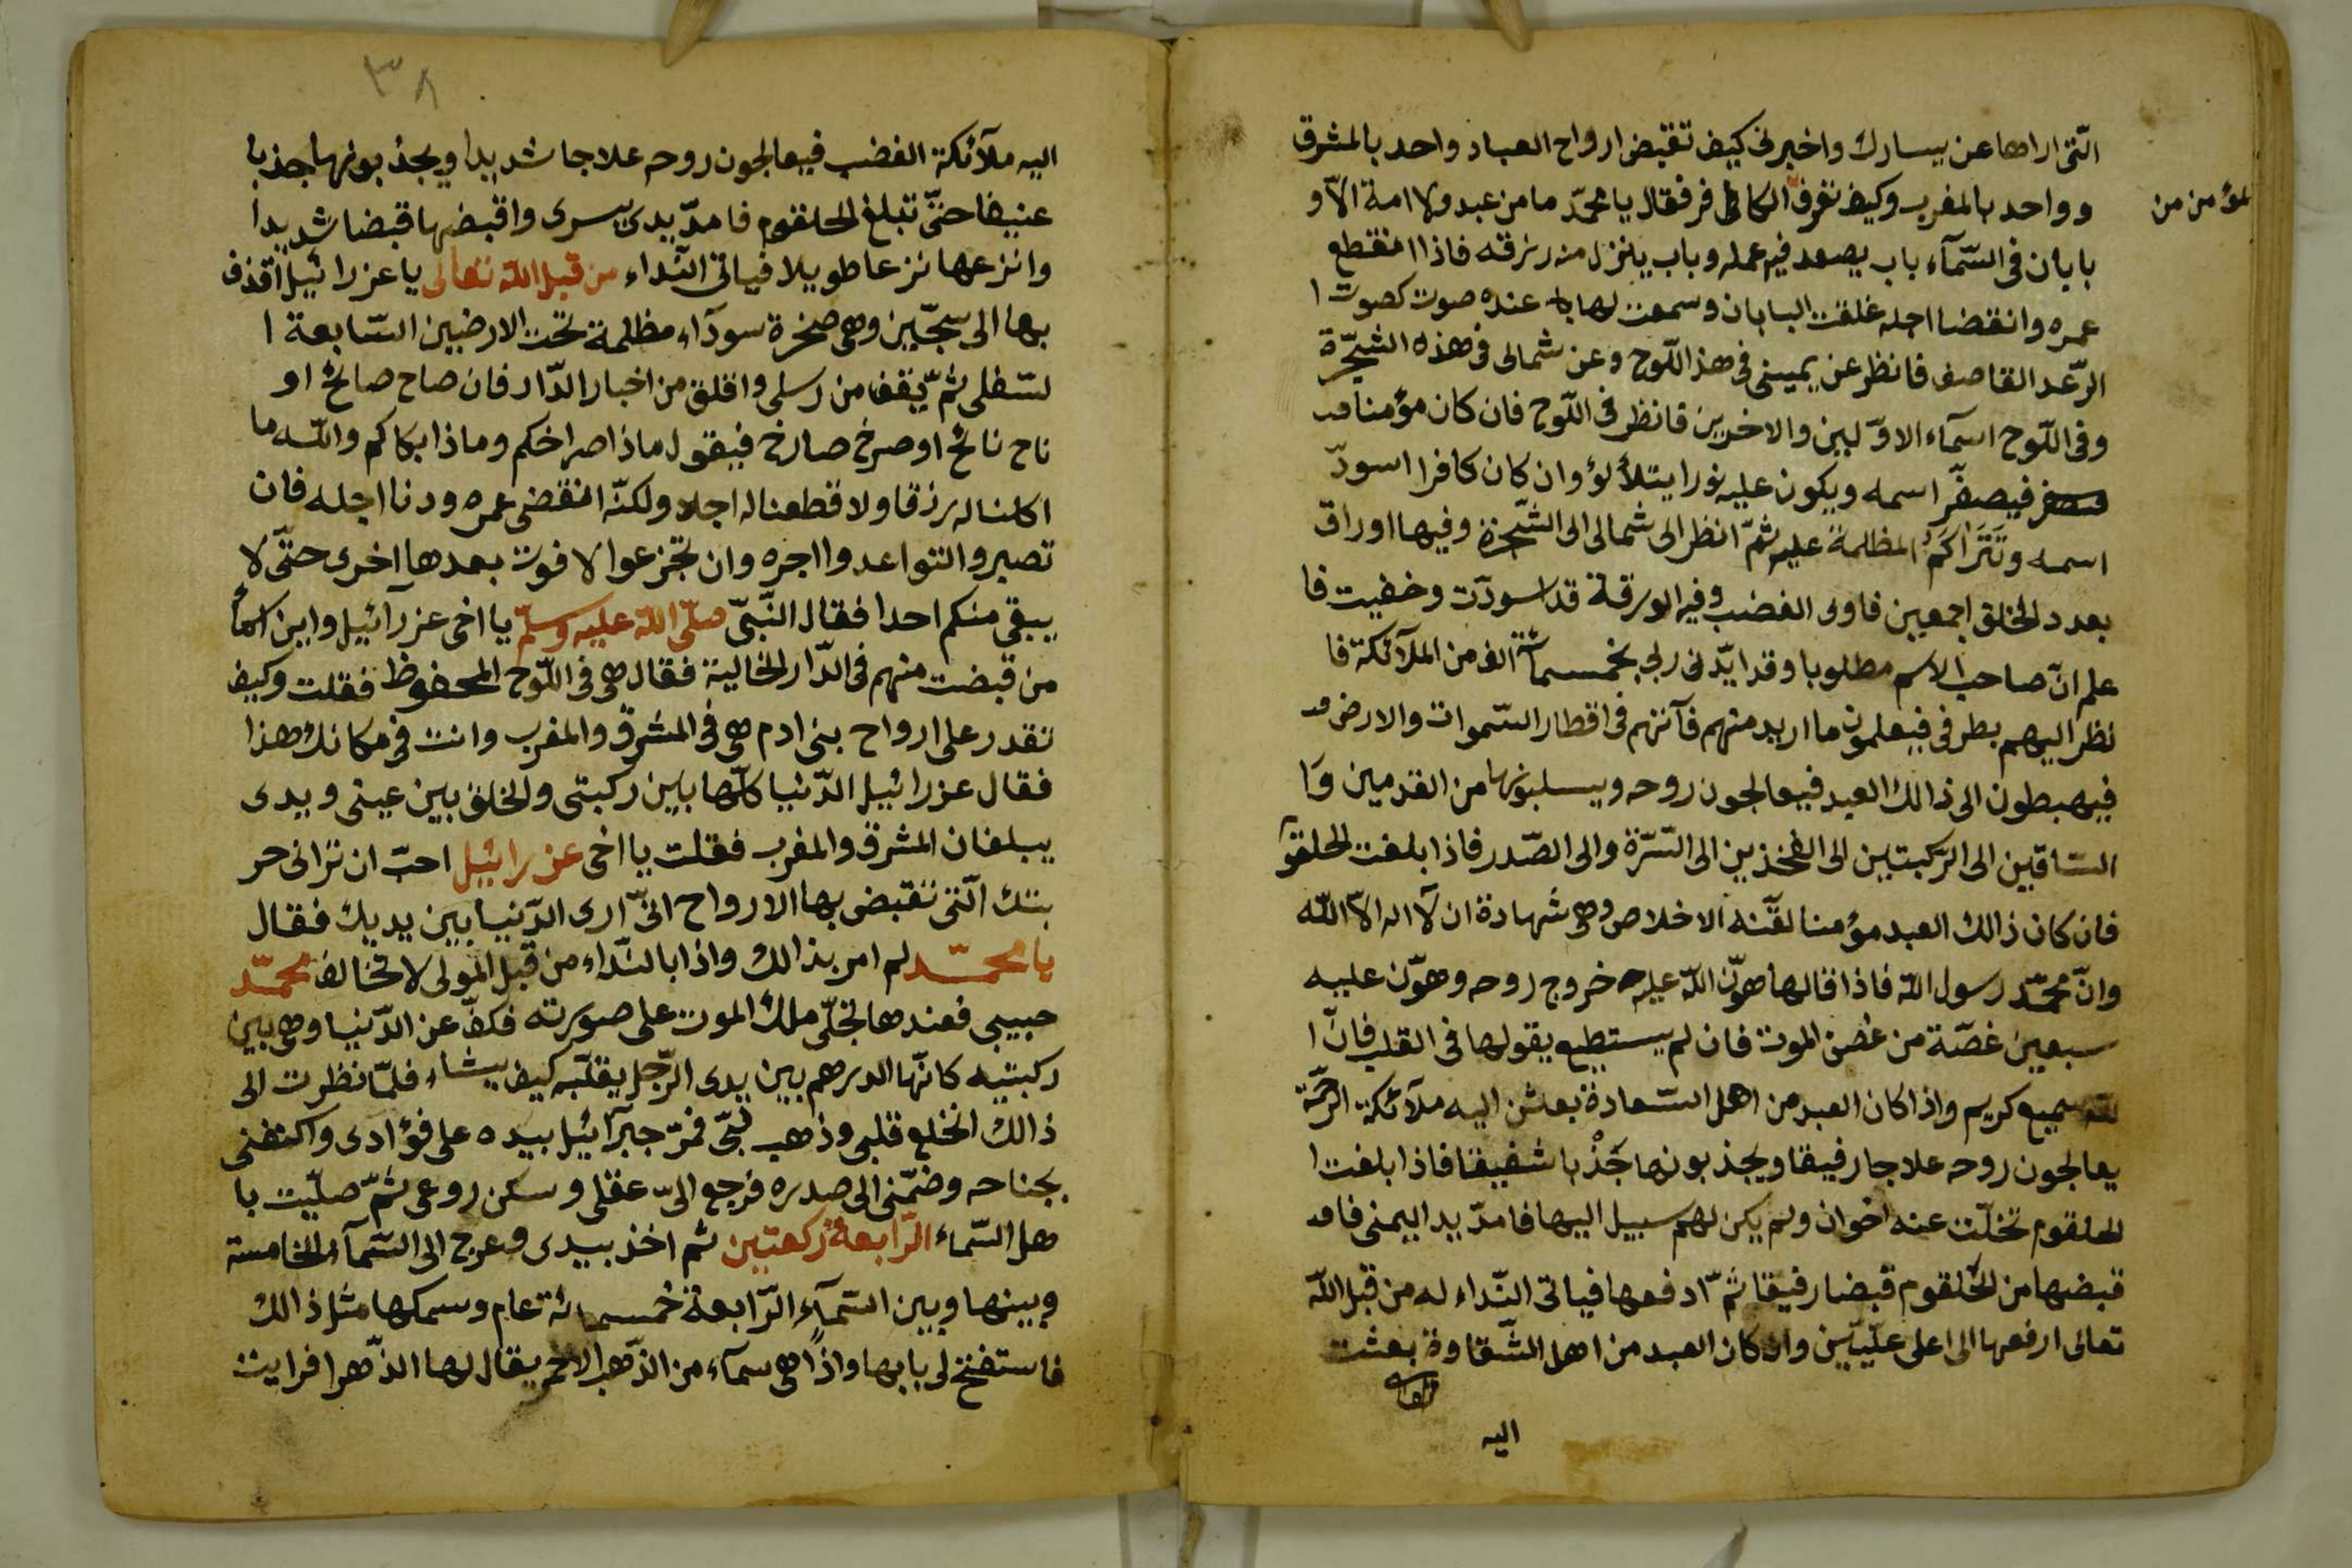 الّتى اراها عن يسارك واخبرنى كيف تقبض ارواح العباد واحد بالمشرق
وواحد بالمغرب وكيف تفرق الكافر فقال يا محمّد ما من عبد ولا امة الاّ و
لمؤمن من
بابان فى السّمآء باب يصعد فيه عمله وباب ينزل منه رزقه فاذا انقطع
عمره وانقضا اجله غلقت البابان وسمعت لها عنده صوت كصوت ا
الرّعد القاصف فانظر عن يمينى فى هذا اللّوح وعن شمالى فى هذه الشّجرة
وفى اللّوح اسمآء الاوّلين والاخرين فانظر فى اللّوح فان كان مؤمنا
فيصفّر اسمه ويكون عليه نورا يتلألؤ وان كان كافرا اسودّ
اسمه وتَتَراكَمُ المظلمة عليه ثمّ انظر الى شمالى الى الشّجرة وفيها اوراق
بعدد الخلق اجمعين فاولى الغضب وفيه الورقة قد اسودّت وخفيت فا
علم انّ صاحب الاسم مطلوبا وقد ايّدنى ربى بخمسمائة الف من الملآئكة فا
نظر اليهم بطرفى فيعلمون ما اريد منهم فآنّهم فى اقطار السّموات والارض
فيهبطون الى ذالك العبد فيعالجون روحه ويسلبونها من القدمين وَا
السّاقين الى الركبتين الى الفخذين الى السّرّة والى الصّدر فاذا بلغت الحلقو
فان كان ذالك العبد مؤمنا لقّنه الاخلاص وهى شهادة ان لآ اله الاّ اللّه
وانّ محمّد رسول اللّه فاذا قالها هوّن اللّه عليه خروج روحه وهوّن عليه
سبعين غصّة من غصن الموت فان لم يستطيع يقولها فى القلب فانّ ا
للّه سميع كريم واذا كان العبد من اهل السّعادة بعثن اليه ملآئكة الرّحمة
يعالجون روحه علاجا رفيقا ويجذبونها جَذْبا شفيقا فاذا بلغت ا
الحلقوم تخلّت عنه اخوان ولم يكن لهم سبيل اليها فامدّ يد اليمنى فا
قبضها من الحلقوم قبضا رفيقا ثمّ ادفعها فياتى النّداء له من قبل اللّه
تعالى ارفعها الى اعلى علّيّين وان كان العبد من اهل الشّقاوة بعثت
اليه
٣٨
اليه ملآئكة الغضب فيعالجون روحه علاجا شديدا ويجذبونها جذبا
عنيفا حتّى تبلغ الحلقوم فامدّ يدى يسرى واقبضها قبضا شديدا
وانزعها نزعا طويلا فياتى النّداء من قبل اللّه تعالى يا عزرائيل اقذف
بها الى سجّين وهى صخرة سودآء مظلمة تحت الارضين السّابعة ا
لسّفلى ثمّ يقف من رسلى واقلق من اخبار الدّار فان صاح صائح او
ناح نائح او صرخ صارخ فيقول ماذا صراخكم وماذا بكاكم واللّه ما
اكلنا له رزقا ولا قطعنا له اجلا ولكنّه انقضى عمره ودنا اجله فان
تصبروا التواعدوا اجره وان تجزعوا لا فوت بعدها اخرى حتّى لا
يبقى منكم احدا فقال النّبىّ صلّى اللّه عليه وسلّم يا اخى عزرآئيل واين اسمأ
من قبضت منهم فى الدّار الخالية فقال هى فى اللّوح المحفوظ فقلت وكيف
تقدر على ارواح بنى ادم هى فى المشرق والمغرب وانت فى مكانك هذا
فقال عزرائيل الدّنيا كلّها بين ركبتى والخلق بين عينى ويدى
يبلغان المشرق والمغرب فقلت يا اخى عزرائيل احبّ ان ترانى حر
بتك الّتى تقبض بها الارواح انّى ارى الدّنيا بين يديك فقال
يا محمّد لم امر بذالك واذا بالنّداء من قبل المولى لا تخالف محمّد
حبيبى فعندها تجلّى ملك الموت على صورته فكفّ عن الدّنيا وهى بين
ركبتيه كانّها الدرهم بين يدى الرّجل يقلّبه كيف يشاء فلمّا نظرت الى
ذالك انخلع قلبى وذهب لبّى فمرّ جبرآئيل بيده على فؤادى واكنفنى
بجناحه وضمّنى الى صدره فرجع الىّ عقلى وسكن روعى ثمّ صلّيت با
هل السّماء الرّابعة ركعتين ثم اخذ بيدى وعرج الى السّمآء الخامسة
وبينها وبين السّمآء الرّابعة خمسمائة عام وسمكها مثل ذالك
فاستفتح لى بابها واذاً هى سمآء من الذّهب الاحمر يقال لها الذّهرا فرايت